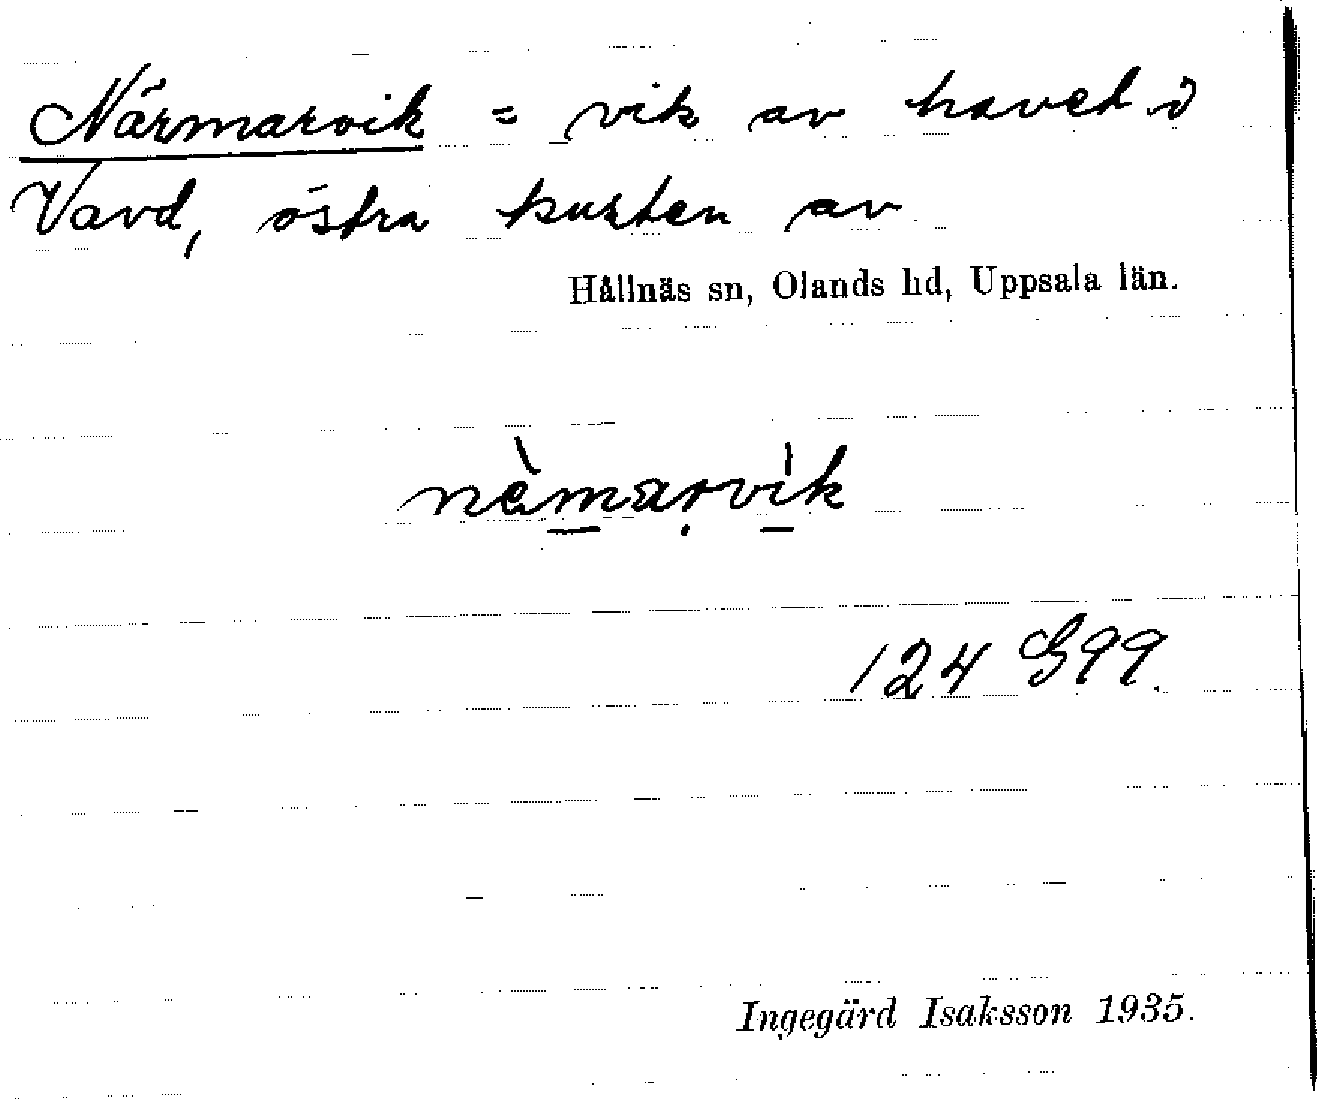 Närmarvik = vik av havet i
Vavd, östra kusten av
Hållnäs sn, Olands hd, Uppsala län.
nèmarvik
124 G99.
Ingegärd Isaksson 1935.